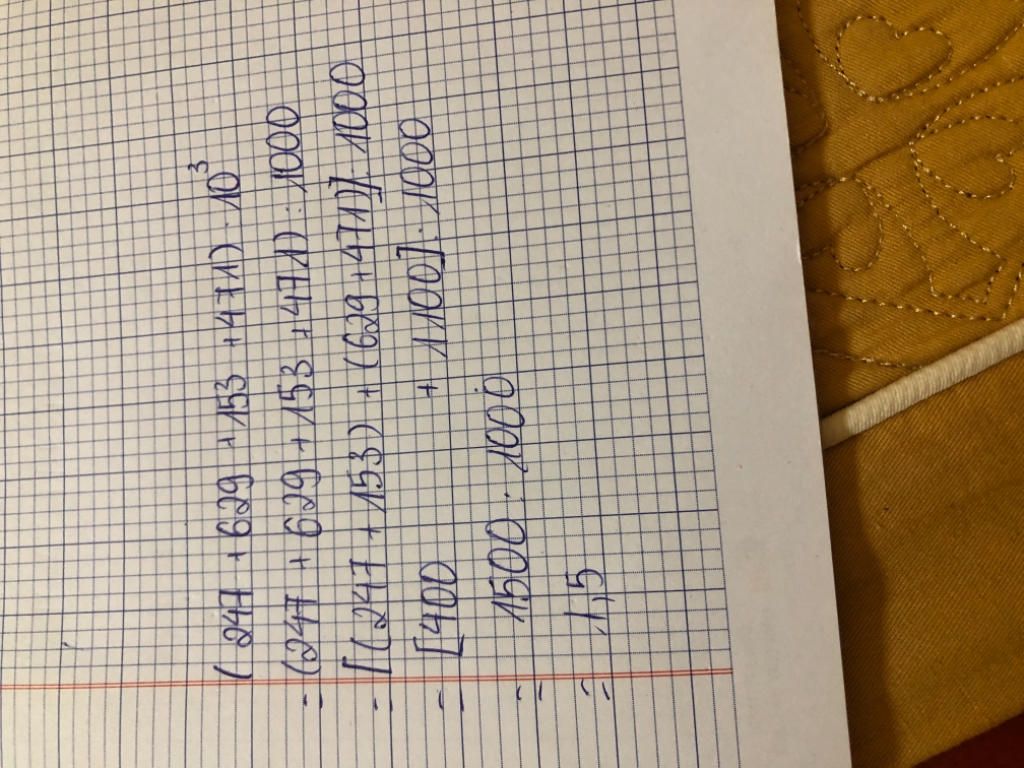 (247 + 629 + 153 + 471) : 10³
= (247 + 629 + 153 + 471) : 1000
= [(247 + 153) + (629 + 471)] : 1000
= [400 + 1100] : 1000
= 1500 : 1000
= 1,5